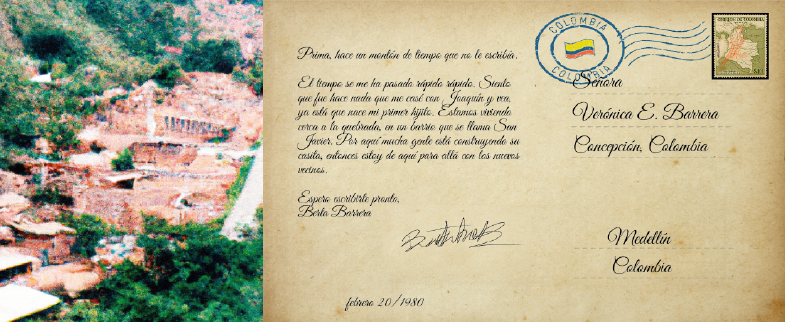 Prima, hace un montón de tiempo que no le escribía.
El tiempo se me ha pasado rápido rápido. Siento
que fue hace nada que me casé con Joaquín y vea,
ya está que nace mi primer hijito. Estamos viviendo
cerca a la quebrada, en un barrio que se llama San
Javier. Por aquí mucha gente está construyendo su
casita, entonces estoy de aquí para allá con los nuevos
vecinos.
Espero escribirle pronto,
Berta Barrera
febrero 20/1980
COLOMBIA
COLOMBIA
Señora
Verónica E. Barrera
Concepción, Colombia
Medellín
Colombia